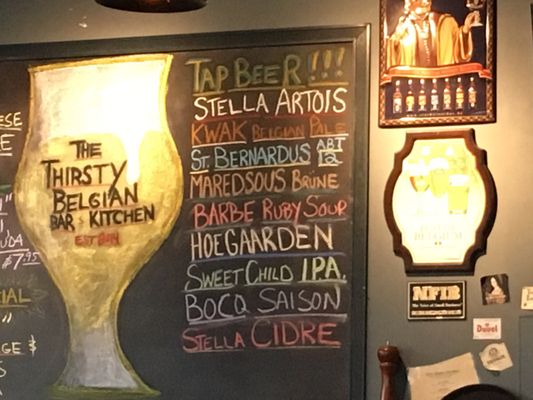 TAP BEER!!!
STELLA ARTOIS
KWAK BELGIAN PALE
ST. BERNARDUS ABT 12
MAREDSOUS BRÜNE
BARBE RUBY SOUR
HOEGAARDEN
SWEET CHILD IPA.
BOCQ SAISON
STELLA CIDRE
THE
THIRSTY
BELGIAN
BAR & KITCHEN
$7.95
NFIB
The Voice of Small Business
Duvel